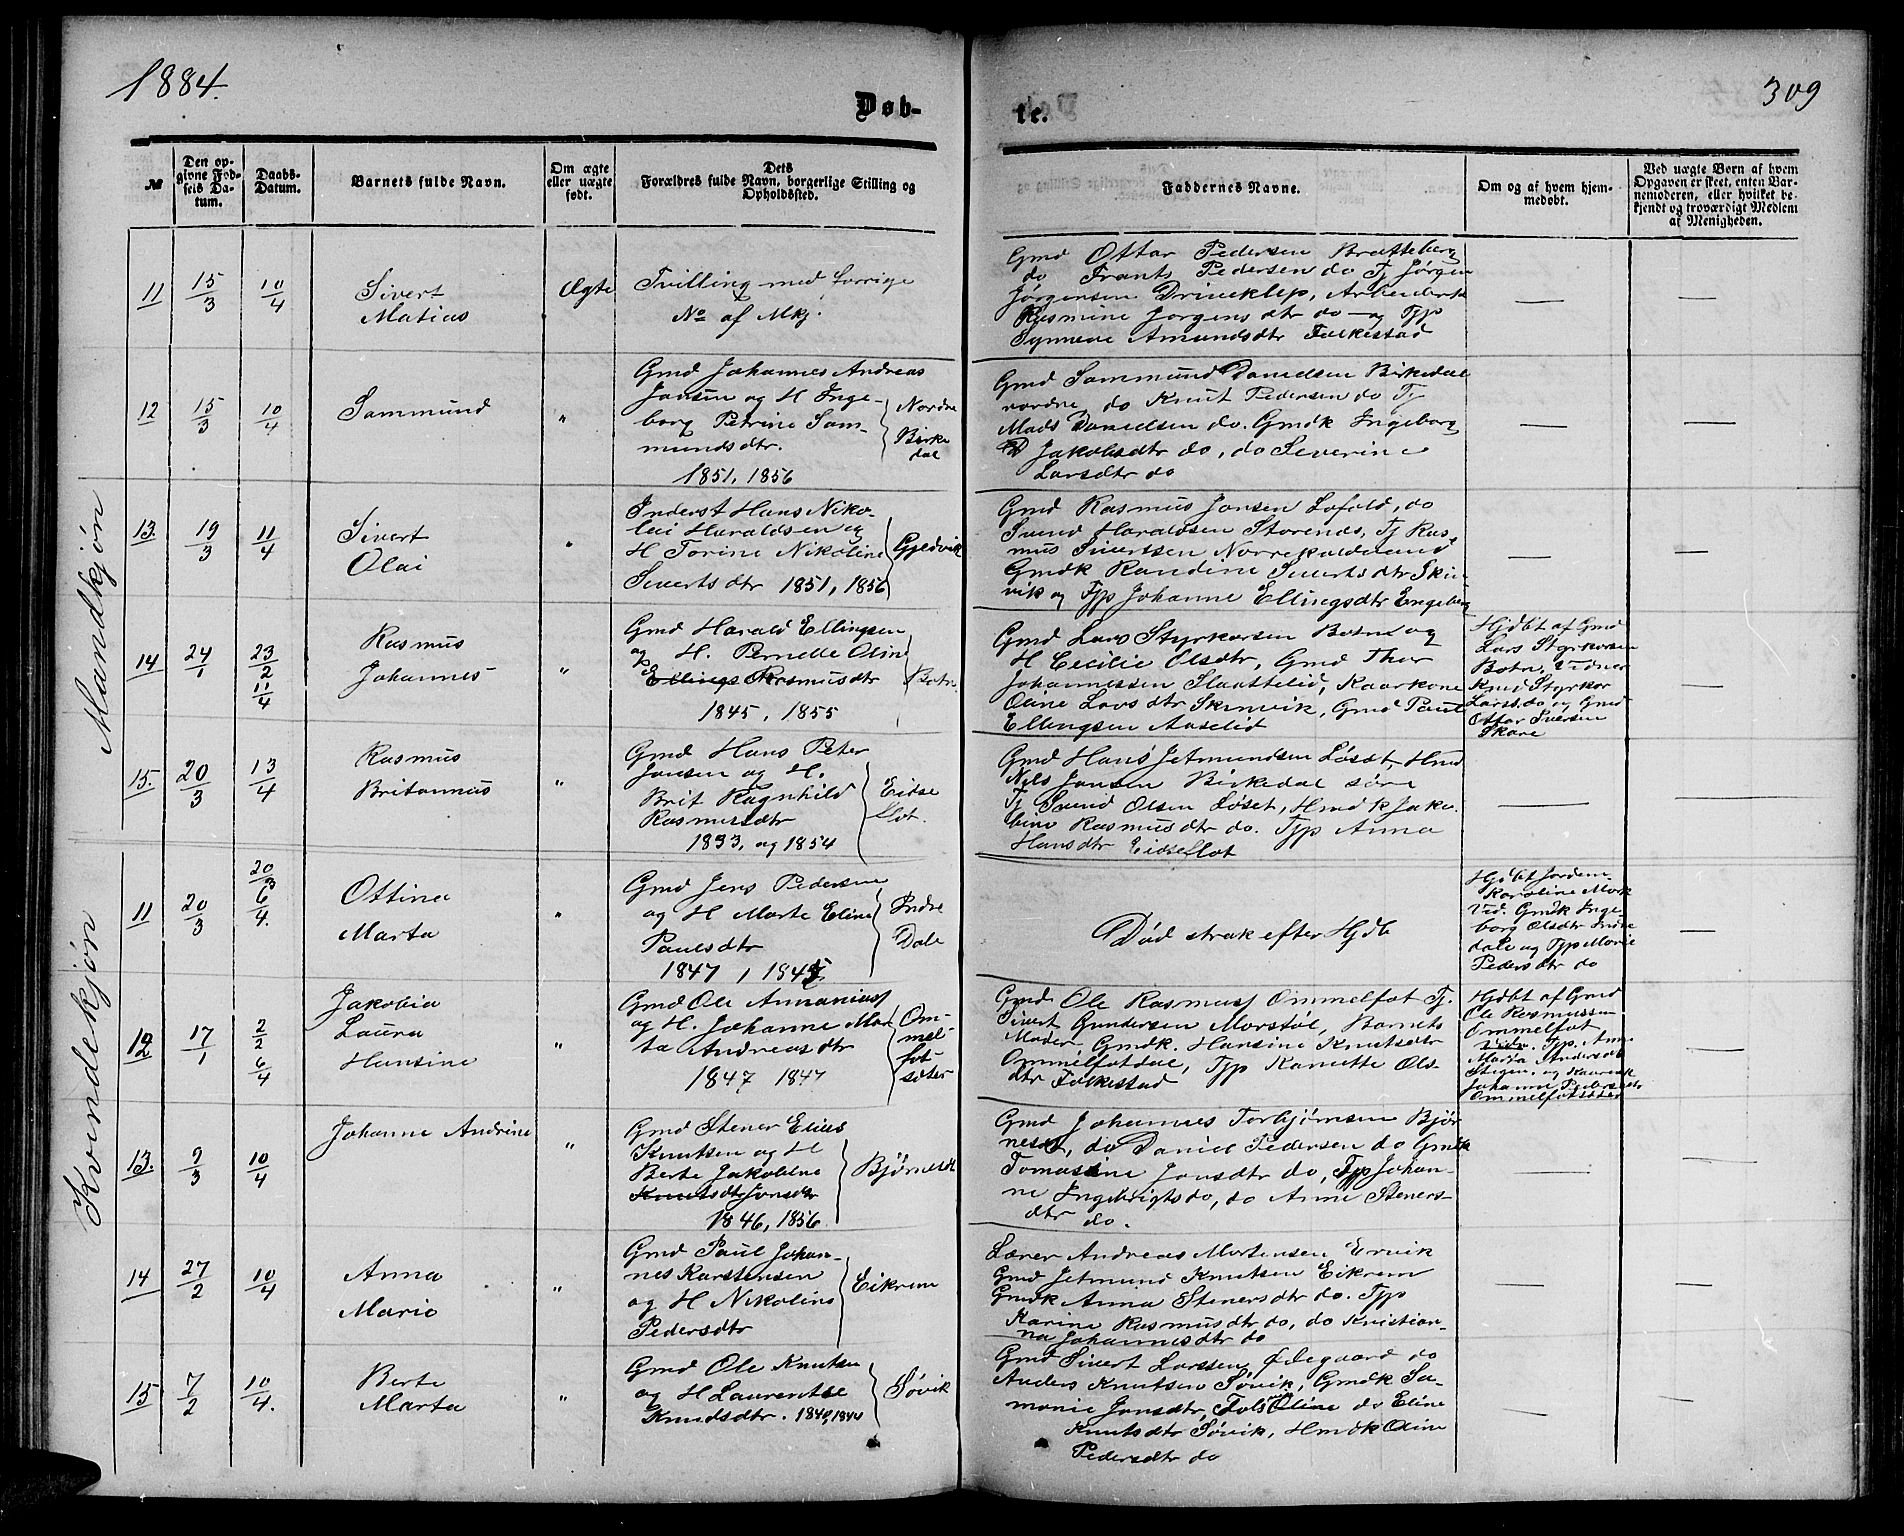 1884.
309
Døb-
te.
№
Den op-
givne Fød-
sels Da-
tum.
Daabs-
Datum.
Barnets fulde Navn.
Om ægte
eller uægte
født.
Dets
Forældres fulde Navn, borgerlige Stilling og
Opholdssted.
Faddernes Navne.
Om og af hvem hjem-
medøbt.
Ved uægte Børn af hvem
Opgaven er skeet, enten Bar-
nemoderen, eller hvilket be-
kjendt og troværdigt Medlem
af Menigheden.
Mandkjøn
11
15/3
10/4
Sivert
Matias
Ægte
Tvilling med forrige
No af Mkj.
Gmd Ottar Pedersen Bratteberg
do Frants Pedersen do Tj Jørgen
Jørgensen Driveklep, Arbeiderk
Rasmine Jørgensdtr do og Pjp
Synneve Amundsdtr Folkestad
—
—
12
15/3
10/4
Sammund
"
Gmd Johannes Andreas
Jonsen og H Inge-
borg Petrine Sam-
mundsdtr.
1851, 1856
Nordre
Birke
dal
Gmd Sammund Danielsen Birkedal
nordre, do Knut Pedersen do Tj
Mads Danielsen do. Gmdk Ingeborg
Jakobsdtr do, do Severine
Larsdtr do
—
—
13.
19/3
11/4
Sivert
Olai
"
Inderst Hans Niko-
lai Haraldsen og
H Torine Nikoline
Sivertsdtr 1851, 1856
Gjedvik
Gmd Rasmus Jonsen Lofold, do
Svend Haraldsen Storenes, Tj Ras
mus Sivertsen
Gmdk Randine Sivertsdtr Skin
vik og Pjp Johanne Ellingsdtr Engeberg
—
—
14
24/1
23/2
11/4
Rasmus
Johannes
"
Gmd Harald Ellingsen
og H. Pernelle Oline
Ellings Rasmusdtr
1845, 1855
Botn.
Gmd Lars Styrkorsen Botn og
H Cecilie Olsdtr, Gmd Thor
Johannessen Slaattelid, Kaarkone
Oline Larsdtr Skinvik, Gmd Paul
Ellingsen Aaselid
Hjdbt af Gmd
Lars Styrkorsen
Botn, Vidner
Styrkor
Larss. do og Gmd
Ottar Iversen
Skare
—
15.
20/3
13/4
Rasmus
Britannus
"
Gmd Hans Peter
Jansen og H.
Brit Ragnhild
Rasmusdtr
1853, og 1854
Eidse
flot.
Gmd Hans Jetmundsen Løset, Hmd
Nils Jansen Birkedal søre
Tj Svend Olsen Løset, Hmdk Jako
bine Rasmusdtr do. Pjp Anna
Hansdtr Eidseflot
—
—
Kvindekjøn
11
20/3
20/3
6/4.
Ottina
Marta
"
Gmd Jens Pedersen
og H Marte Eline
Paulsdtr
1847, 1845
Indre
Dale
Død strak efter Hjdb
Hjdbt Jordem.
Karoline Mork
Vid. Gmdk Inge
borg Olsdtr Indre
dale og Pjp Marie
Pedersdtr do
—
12
17/1
2/2
6/4
Jakobia
Laura
Hansine
"
Gmd Ole Annaniass
og H. Johanne Mar
ta Andreasdtr
1847 1847
Om-
mel-
fot-
sæter
Gmd Ole Rasmuss Ommelfot Tj.
Sivert Gundersen Morstøl, Barnets
Moder Gmdk. Hansine Knutsdtr
Ommelfotdal, Pjp Kanutte Ols-
dtr Folkestad
Hjdbt af Gmd
Ole Rasmussen
Ommelfot
Vidn. Pjp. Anne
Maria Andersdt
Stigen og Kaarek
Johanne Pedersdtr
Ommelfotsæter
13.
2/3
10/4
Johanne Andrine
"
Gmd Stener Elias
Knutsen og H
Berte Jakobine
Knutsdtr Jonsdtr
1846, 1856
Bjørneset
Gmd Johannes Torbjørnsen Bjør
neset, do Daniel Pedersen do Gmdk
Tomasine Jonsdtr do, Pjp Johan-
ne Ingebrigtsdo, do Anne Steners-
dtr do.
—
14
27/2
10/4
Anna
Marie
"
Gmd Paul Johan-
nes Karstensen
og H Nikoline
Pedersdtr
Eikrem
Lærer Andreas Mortensen Ervik
Gmd Jetmund Knutsen Eikrem
Gmdk Anna Stenersdtr do. Pjp
Karine Rasmusdtr do, do Kristian-
na Johannesdtr do
—
—
15
7/2
10/4.
Berte
Marta
"
Gmd Ole Knutsen
og H Laurentse
Knudsdtr. 1840, 1844
Søvik
Gmd Sivert Larssen Ødegaard do
Anders Knutsen Søvik, Gmdk Sa-
monie Jonsdtr, Oline do Eline
Knutsdtr Søvik, Hmdk Oline
Pedersdtr do
—
—